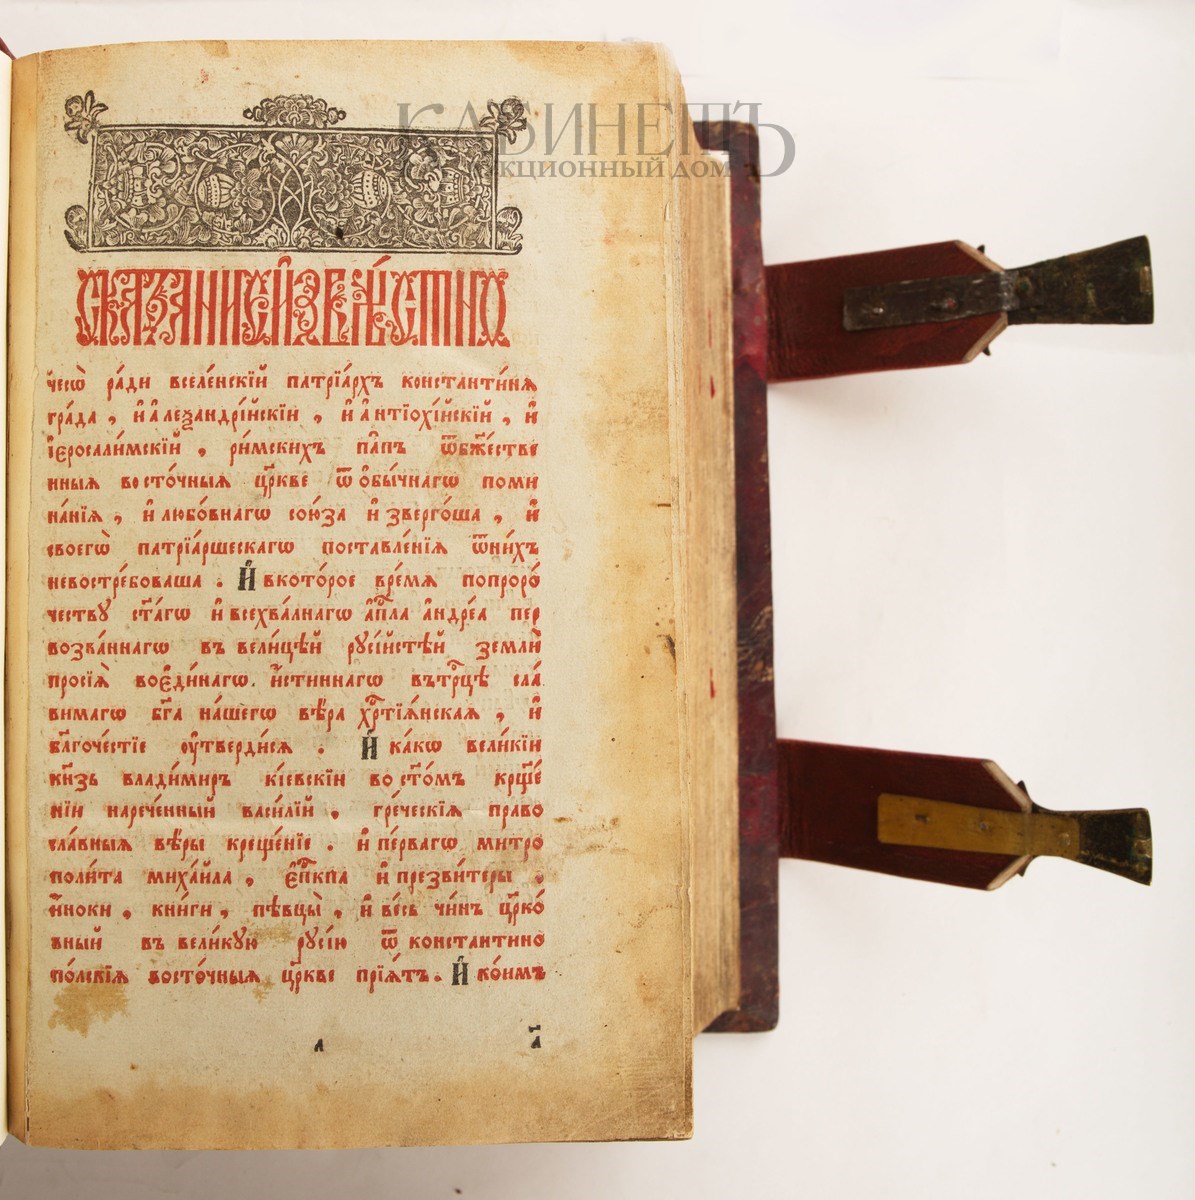 КАБИНЕТЪ
АУКЦИОННЫЙ ДОМ
СКАЗАНИЕ И҆ЗВѢСТНО
чесѡ̀ ра́ди вселе́нскїй патрїа́рхъ константи́на
гра́да , и҆ а҆леѯандрі́йскїи , и҆ а҆нтїохі́йскїй , и҆
і҆єросали́мскїй , ри́мскихъ па́пъ ѿ бж҃е́стве
нныя восто́чныя цр҃кве ѿ ѻ҆бы́чнагѡ поми
на́нїѧ , и҆ любо́внагѡ сою́за и҆звергѡ́ша , и҆
своегѡ̀ патрїа́ршескагѡ поставле́нїѧ ѿ ни́хъ
невостре́боваша . И҆ вкото́рое вре́мѧ попроро́
честву ст҃а́гѡ и҆ всехва́лнагѡ а҆пⷭ҇ла а҆ндре́а пер
возва́ннагѡ въ вели́цѣй русі́йстѣй землѝ
просїѧ̀ воє҆ди́нагѡ . и҆́стиннагѡ въ трⷪ҇цѣ сла́
вимагѡ бг҃а на́шегѡ вѣ́ра хрⷭ҇тїѧ́нская , и҆
бл҃гоче́стїе ᲂу҆тверди́сѧ . И҆ ка́кѡ вели́кїи
кн҃зь влади́миръ кі́евскїи во ст҃о́мъ крⷳ҇е́
нїи нарече́нный васи́лїй , гре́ческїѧ право
сла́вныѧ вѣ́ры креще́нїе . и҆ пе́рвагѡ митро
поли́та миха́ила , є҆пⷭ҇кпа и҆ презви́теры ,
и҆́ноки , кни́ги , пѣвцы̀ , и҆ ве́сь чи́нъ цр҃ко́
вный въ вели́кую русі́ю ѿ константино
по́лскїѧ восто́чныѧ цр҃кве прїѧ́тъ . И҆ ко́имъ
л
а҃